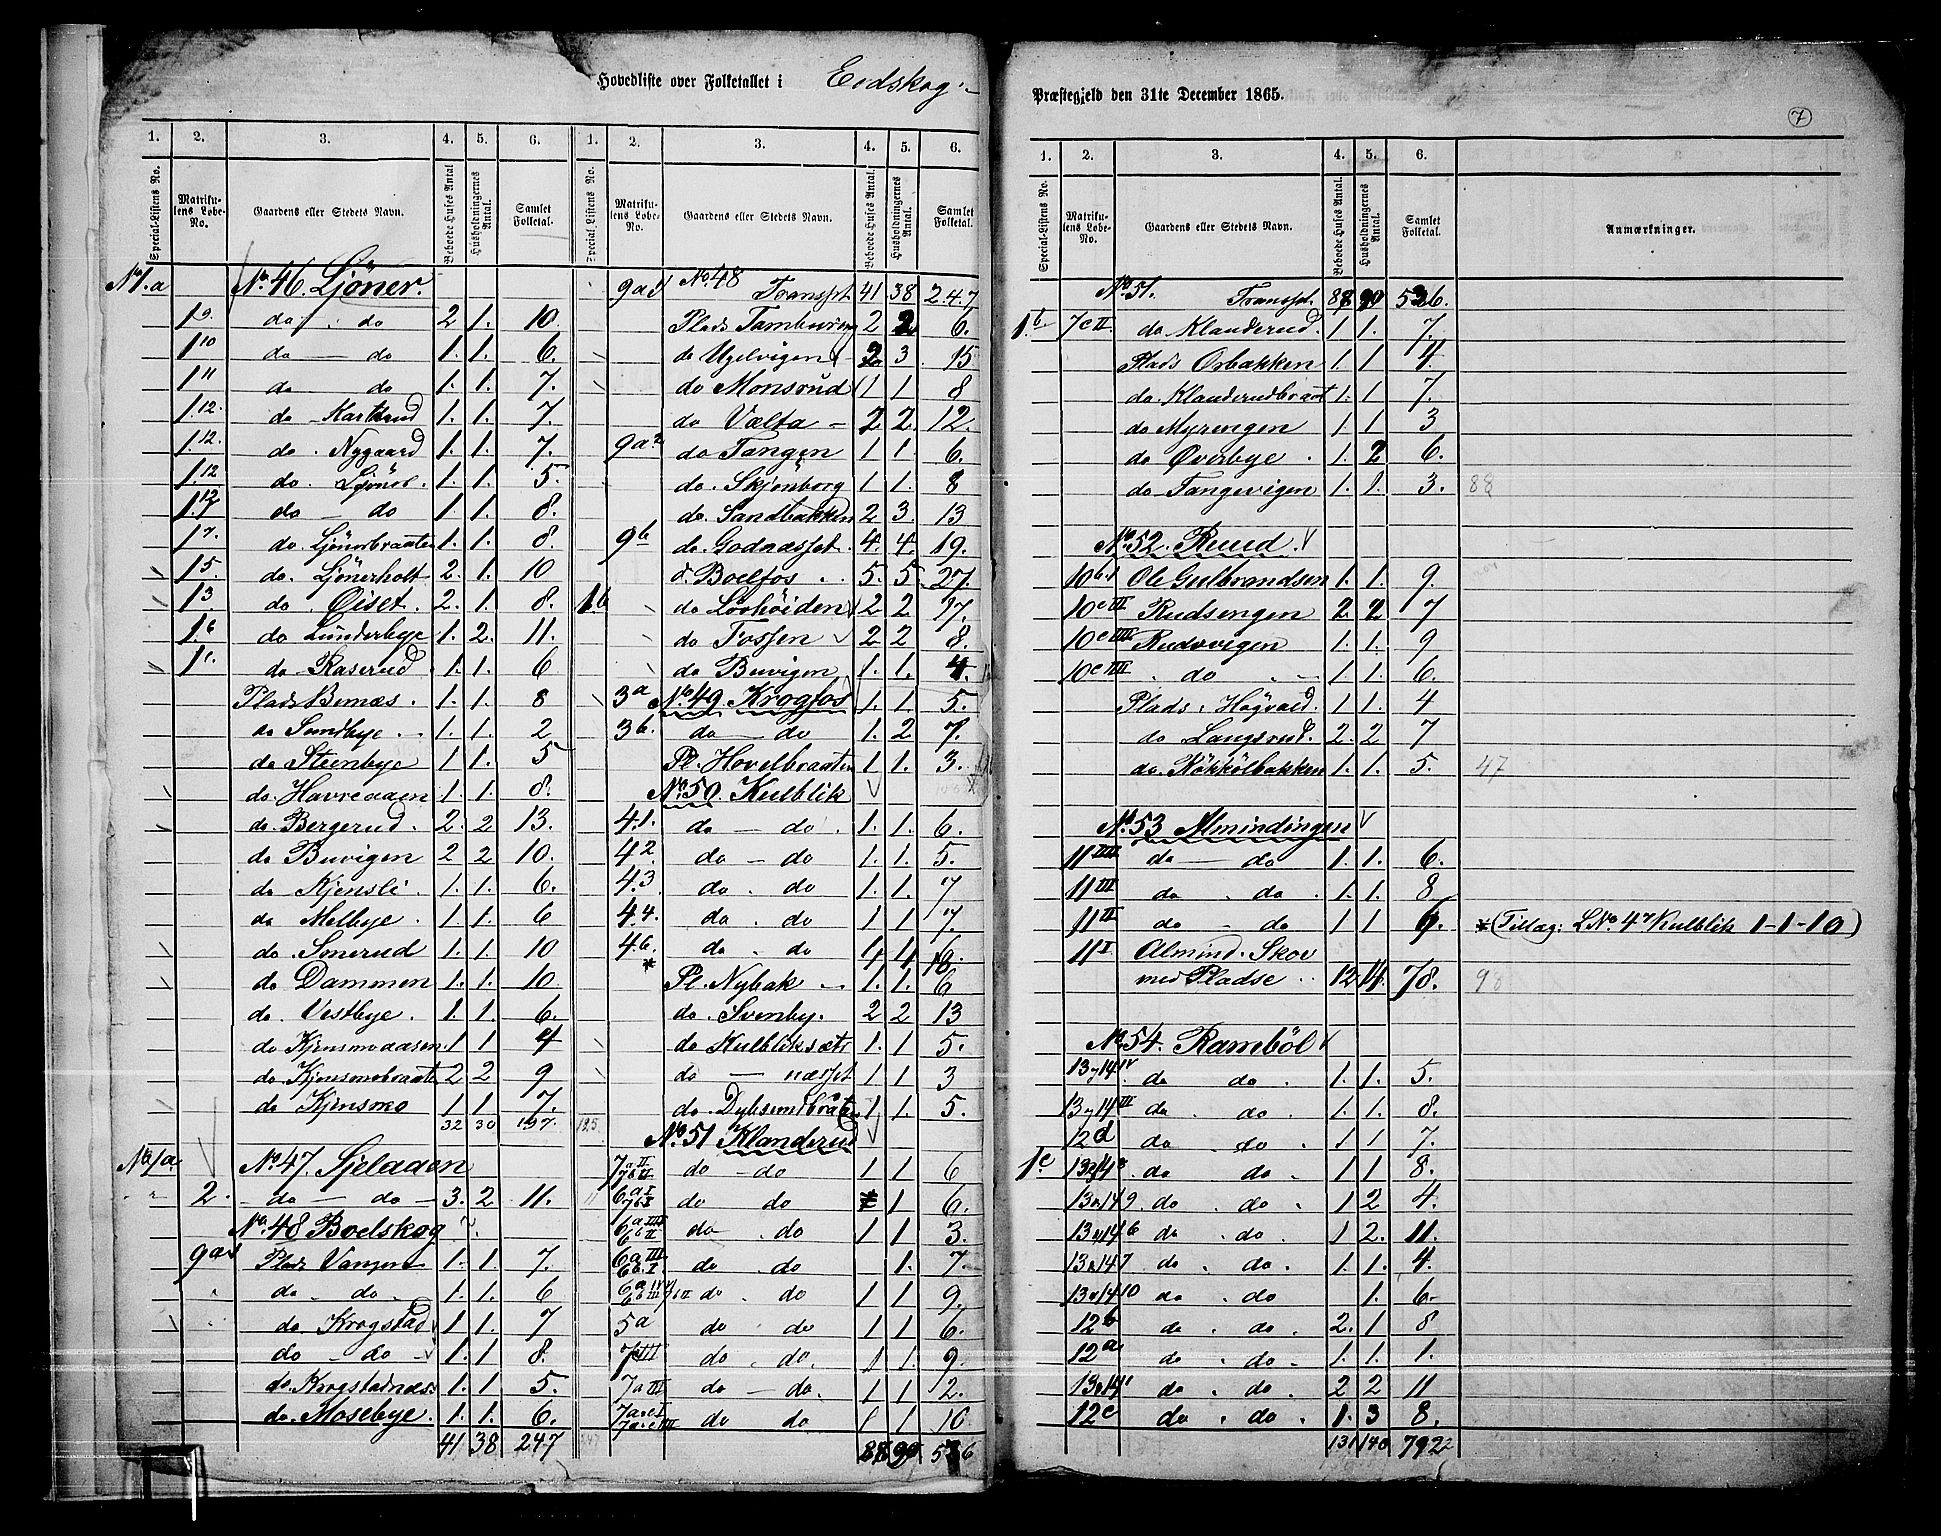 Hovedliste over Folketallet i Eidskog
1. 2. 3. 4. 5. 6.
Special-Listens No. Matrikulens Løbe-No. Gaardens eller Stedets Navn. Beboede Huses Antal Husholdningernes Antal. Samlet Folketal.
No 1.a No. 46. Ljöner.
1 9. do do 2 1. 10.
1 10 do — do 1. 1. 6.
1 11 do do 1. 1. 7.
1. 12. do 1. 1. 7.
1. 12. do. Nygaard 1. 1. 7.
1. 12 do. Ljöner. 1. 1. 5.
1. 12 do — do 1. 1. 8.
1 7. do. Ljönerbraaten 1. 1. 8.
1 5. do. Ljönerholt 2. 1. 10
1 3 do. Öiset. 2. 1. 8.
1. 6 do Lunderbye 1. 2. 11.
1 c. do Raserud. 1. 1. 6
Plads Bernæs. 1. 1. 8
do Sundbye. 1. 1. 2
do Steenbye 1. 1. 5
do. Havreaaen 1. 1. 8.
do. Bergerud. 2. 2 13.
do Buvigen 2 2 10.
do Kjensli. 1. 1. 6.
do Melbye. 1. 1. 6
do. Smerud 1. 1. 10
do Dammen 1. 1. 10
do. Vestbye. 1. 1. 6.
do Kjensmoaasen 1 1 4
do. Kjensmobraaten 2 2 9
do Kjensmo 1 1 7.
32 30 197. 195.
No 1a No. 47. Sjelaaen
2. do — do 3. 2 11.
No. 48 Boelskog
9a1 Plads Vangen 1. 1. 7.
do. do. 1. 1. 6
do. Krogstad 1 1. 7
do — do 1. 1 8.
do. Krogstadnæs. 1. 1 5.
do. Mosebye. 1. 1. 6.
41 38 247
1. 2. 3. 4. 5. 6.
Special-Listens No. Matrikulens Løbe-No. Gaardens eller Stedets Navn. Beboede Huses Antal. Husholdningernes Antal. Samlet Folketal.
9a1 No. 48 Transpt. 41 38 247
Plads Tambureng 2 2 6.
do Ugelvigen 2 3. 15
do Monsrud 1 1 8
do Valta 2 2. 12.
9a2 do Tangen 1 1. 6.
do. Skjenborg 1 1. 8
do. Sandbakken 2 3. 13
9b do. Godnæsset. 4. 4. 19.
Boelfos. 5. 5. 27.
1.b do Lövhöiden 2 2 17.
do Fossen 2 2 8.
do Buvigen 1. 1. 4.
3a No. 49. Krogfos 1. 1 5.
3b. do — do 1. 2 7.
Pl. Hovelbraaten 1. 1. 3.
No. 50. Kulblik
4.1. do — do. 1. 1. 6.
4.2 do — do 1. 1. 5.
4.3 do. do 1. 1. 7
4.4. do. do 1 1 7.
4.6. * do. do 4 4 16.
Pl. Nybak 1. 1. 6
do. Svenby. 2 2 13
do Kulbliksætr 1. 1 5.
do — næsset 1 1 3
do. 1 1. 5.
No 51 Klanderud
7aII 7bII do — do 1 1 6
6aI 7bI do do 1 6.
6aIII 6bII do. do 1 1 3.
6aIII 6bI do. do 1. 7.
do. do 1 1 9.
5a do. do 1 1 6.
do. do. 1 1. 9.
7aIII do — do. 1 1 2.
do do 1 1 10
88 90 536
Præstegjeld den 31te December 1865.
7
1. 2. 3. 4. 5. 6.
Special-Listens No. Matrikulens Løbe-No. Gaardens eller Stedets Navn. Beboede Huses Antal. Husholdningernes Antal. Samlet Folketal. Anmærkninger.
No. 51. Transpt. 88 90 536.
1.b. 7cII. do Klanderud. 1. 1. 7.
Plads Orbakken 1. 1 4.
do. Klanderudbraat 1. 1 7.
do Myrengen 1. 1 3
do Överbye. 1. 2 6.
do Tangevigen 1. 1. 3. 88
No. 52. Ruud.
10b.1 Ole Gulbrandsen 1. 1. 9.
10cII Rudsengen 2. 2 7
10cIII Rudsvigen 1. 1. 9
10cIII do 1. 1 6.
Plads. Högvald. 1. 1 4
do Langsrud. 2. 2 7
do. Kökkölbakken 1. 1. 5. 47
No. 53 Almindingen
11IIII do — do 1. 1. 6.
11III do. do. 1. 1. 8
11II do — do 1 1 6. *(Tillæg: LNo. 4 7 Kulblik 1-1-10)
11I Almind. Skov
med Pladse 12 14. 78. 98
No. 54. Ramböl
13 y 14 IV do do. 1. 1. 5.
13 y 14 III do. do. 1. 1. 8.
12d do. do. 1 1 7.
1.c 13 y 14 3 do do. 1 1 8.
13 y 14 9. do. do. 1 2 4.
13 y 14 6 do. do. 1 2. 11.
13 y 14 7 do. do. 1. 1. 4.
13 y 14 10 do. do 1. 6.
12b do. do. 2. 1 8
12a do. do. 1. 1. 1.
13 y 14 1 do. do. 2 2 11
12c do. do. 1. 3 8.
131 140 792